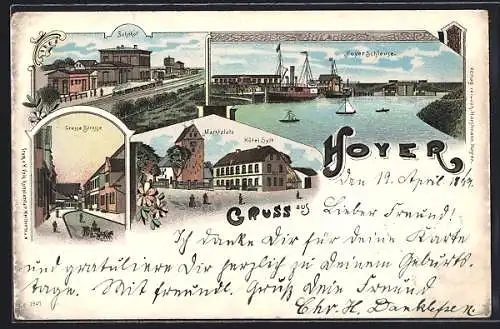 Bahnhof
Hoyer Schleuse.
Grosse Strasse
Marktplatz
Hôtel Sylt
HOYER
GRUSS aus
den 19. April 1899.
Lieber Freund!
Ich danke Dir für deine Karte
und gratuliere Dir herzlich zu Deinem Geburts-
tage. Mit freundl. Gruß Dein Freund
Chr. H.